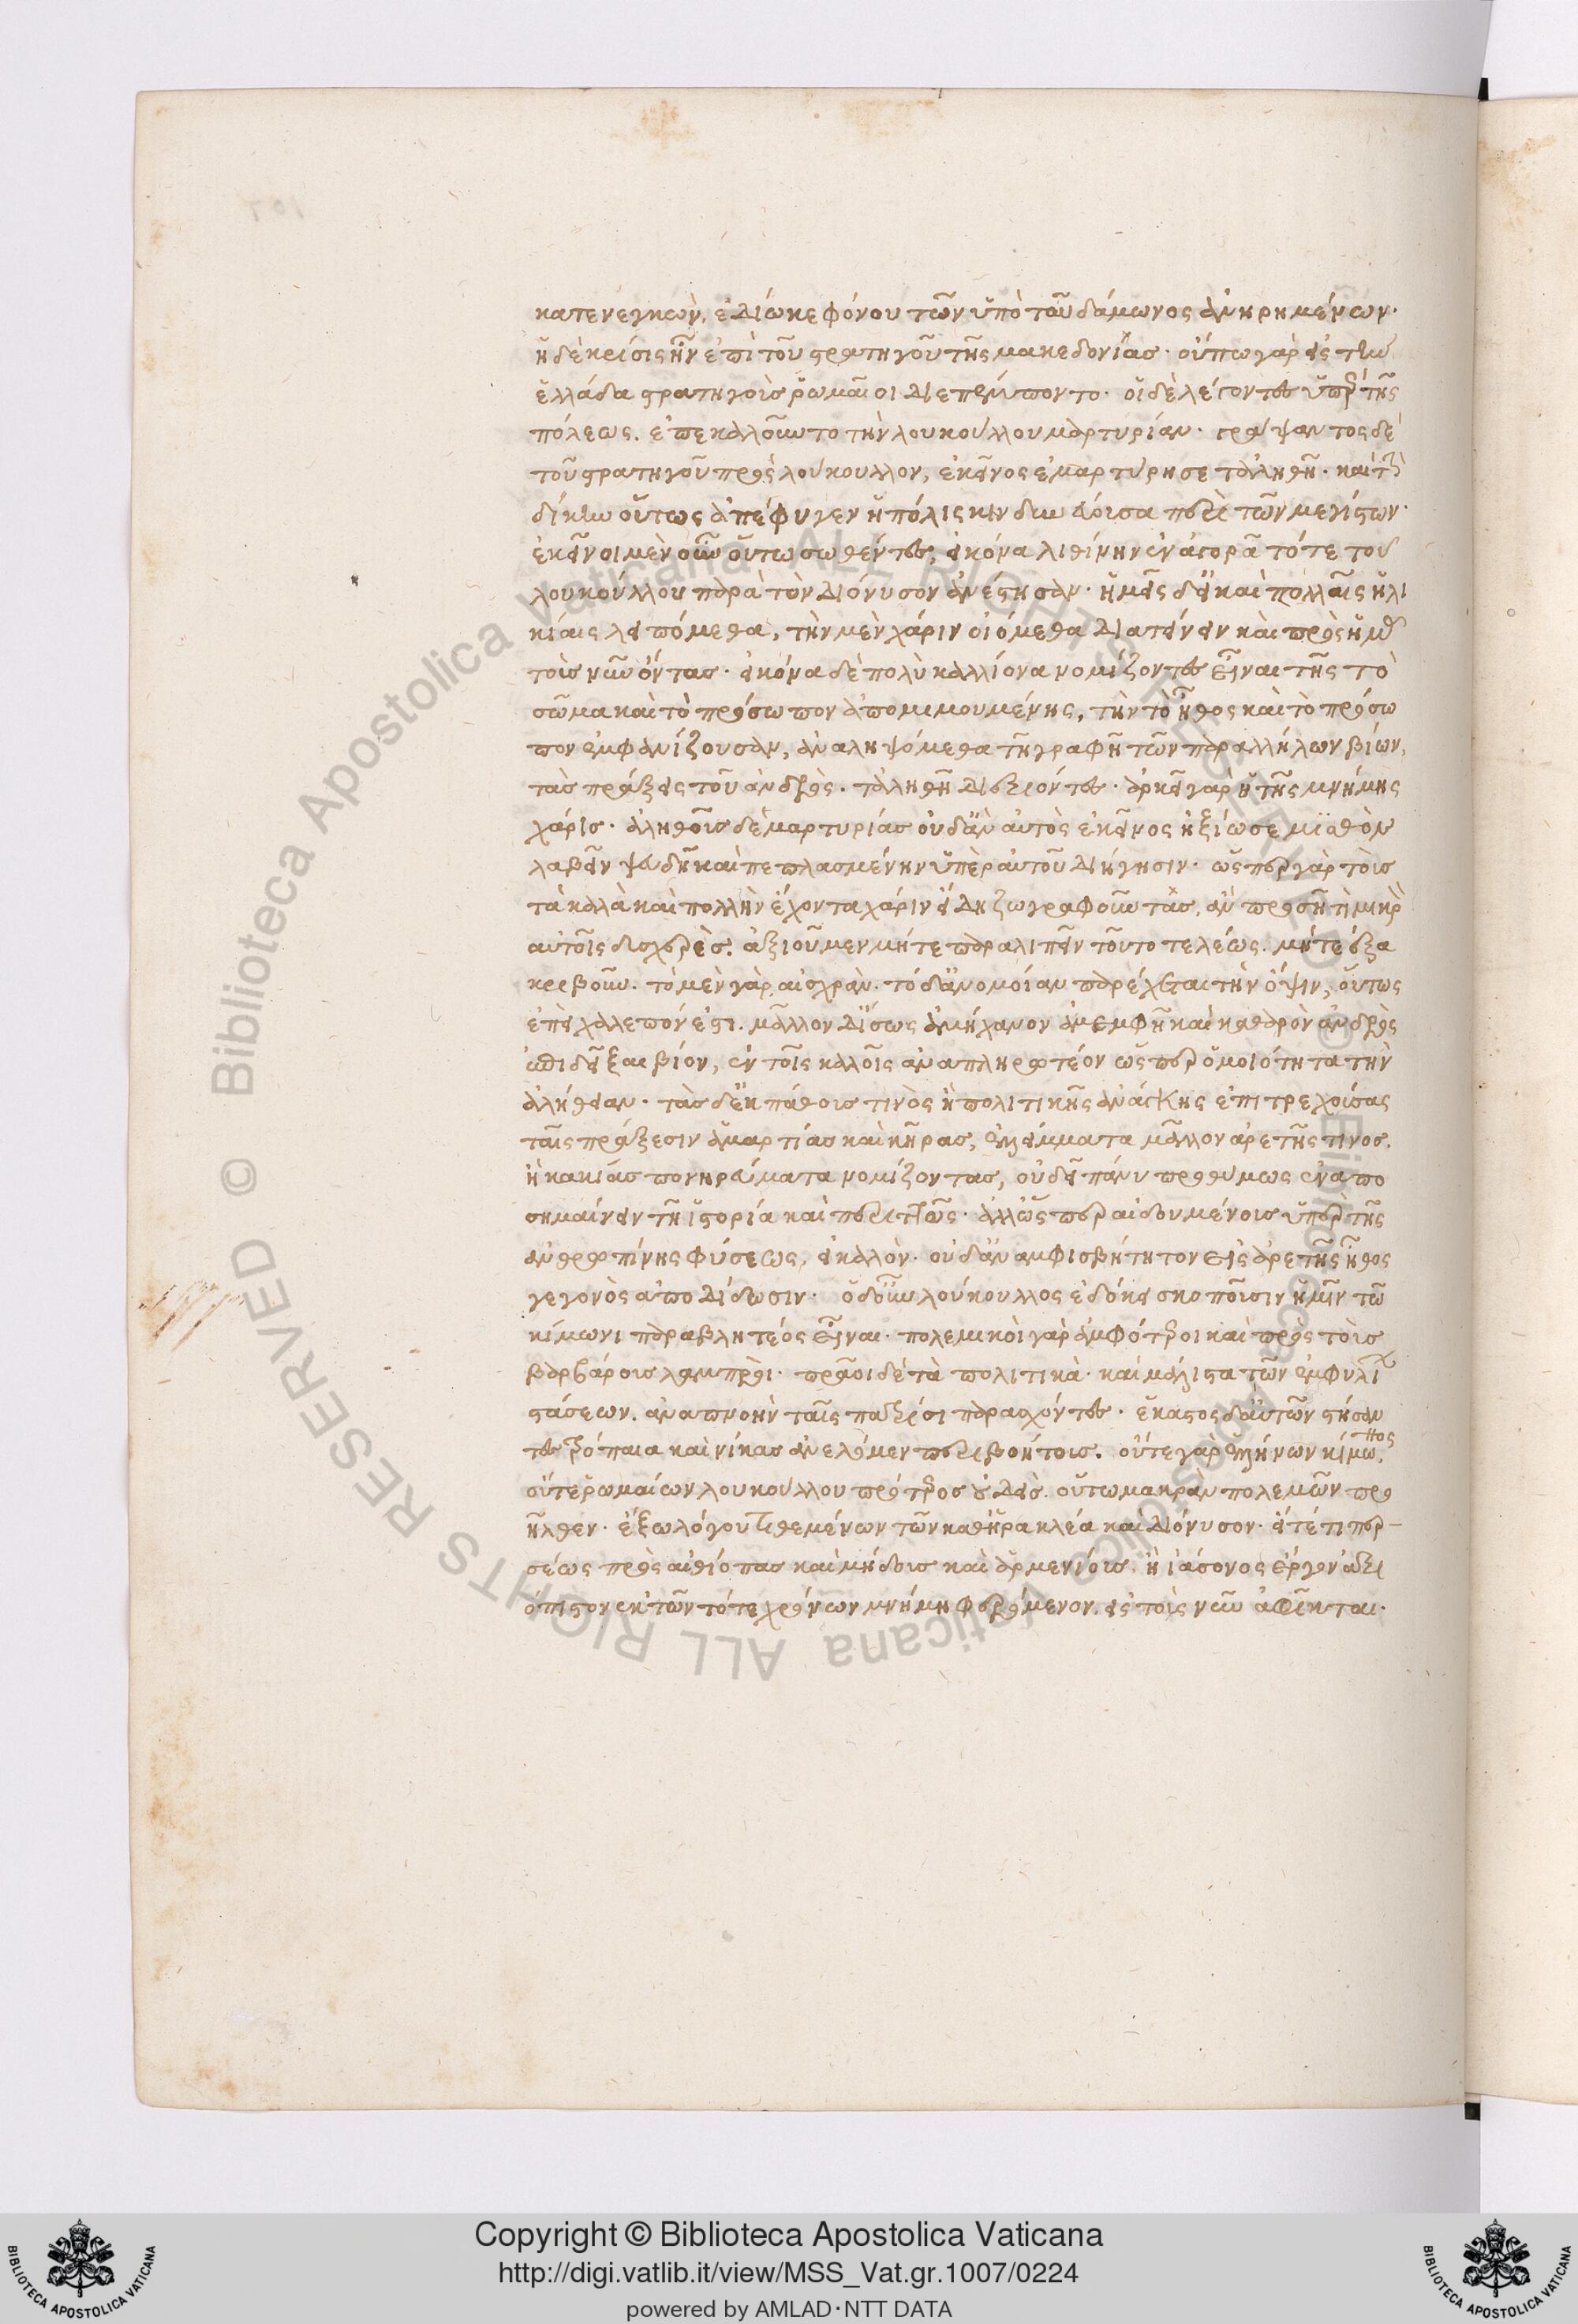 κατενεγκὼν, ἐδίωκε φόνου τῶν ὑπὸ τοῦ δάμωνος ἀνῃρημένων·
ἡ δὲ κρίσις ἦν ἐπὶ τοῦ στρατηγοῦ τῆς μακεδονίας· οὔπω γὰρ εἰς τὴν
ἑλλάδα στρατηγοὺς ῥωμαῖοι διεπέμποντο· οἱ δὲ λέγοντες ὑπὲρ τῆς
πόλεως. ἐπεκαλοῦντο τὴν λουκούλλου μαρτυρίαν· γράψαντος δὲ
τοῦ στρατηγοῦ πρὸς λούκουλλον, ἐκεῖνος ἐμαρτύρησε τἀληθῆ· καὶ τὴν
δίκην οὕτως ἀπέφυγεν ἡ πόλις κινδυνεύουσα περὶ τῶν μεγίστων·
ἐκεῖνοι μὲν οὖν οὕτω σωθέντες, εἰκόνα λιθίνην ἐν ἀγορᾶ τότε τοῦ
λουκούλλου παρὰ τὸν διόνυσον ἀνέστησαν· ἡμεῖς δ' εἰ καὶ πολλαῖς ἡλι
κίαις λειπόμεθα, τὴν μὲν χάριν οἰόμεθα διατείνειν καὶ πρὸς ἡμᾶς
τοὺς νῦν ὄντας· εἰκόνα δὲ πολὺ καλλίονα νομίζοντες εἶναι τῆς τὸ
σῶμα καὶ τὸ πρόσωπον ἀπομιμουμένης, τὴν τὸ ἦθος καὶ τὸ πρόσω
πον ἐμφανίζουσαν, ἀναληψόμεθα τῆ γραφῆ τῶν παραλλήλων βίων,
τὰς πράξεις τοῦ ἀνδρὸς. τἀληθῆ διεξιόντες· ἀρκεῖ γὰρ ἡ τῆς μνήμης
χάρις· ἀληθοῦς δὲ μαρτυρίας οὐδ' ἂν αὐτὸς ἐκεῖνος ἠξίωσε μισθὸν
λαβεῖν ψευδῆ καὶ πεπλασμένην ὑπὲρ αὐτοῦ διήγησιν· ὥσπερ γὰρ τοὺς
τὰ καλὰ καὶ πολλὴν ἔχοντα χάριν εἴδη ζωγραφοῦντας, ἂν προσῆ τι μικρὸ
αὐτοῖς δυσχερὲς. ἀξιοῦμεν μήτε παραλιπεῖν τοῦτο τελέως. μήτε ἐξα
κριβοῦν. τὸ μὲν γὰρ, αἰσχρὰν. τὸ δ' ἀνομοίαν παρέχεται τὴν ὄψιν, οὕτως
ἐπεὶ χαλεπόν ἐστι. μᾶλλον δ' ἴσως ἀμήχανον ἀμεμφῆ καὶ καθαρὸν ἀνδρὸς
ἐπιδεῖξαι βίον, ἐν τοῖς καλοῖς ἀναπληρωτέον ὥσπερ ὁμοιότητα τὴν
ἀλήθειαν· τὰς δ' ἐκ πάθους τινὸς ἢ πολιτικῆς ἀνάγκης ἐπιτρεχούσας
ταῖς πράξεσιν ἁμαρτίας καὶ κῆρας, ἐλλείμματα μᾶλλον ἀρετῆς τινος.
ἢ κακίας πονηρεύματα νομίζοντας, οὐ δεῖ πάνυ προθύμως ἐναπο
σημαίνειν τῆ ἱστορία καὶ περιττῶς· ἀλλ' ὥσπερ αἰδουμένους ὑπὲρ τῆς
ἀνθρωπίνης φύσεως, εἰ καλὸν· οὐδὲν ἀμφισβήτητον εἰς ἀρετῆς ἦθος
γεγονὸς ἀποδίδωσιν· ὁ δ' οὖν λούκουλλος ἐδόκει σκοποῦσιν ἡμῖν τῶ
κίμωνι παραβλητέος εἶναι· πολεμικοὶ γὰρ ἀμφότεροι καὶ πρὸς τοὺς
βαρβάρους λαμπροὶ· πρᾶοι δὲ τὰ πολιτικὰ· καὶ μάλιστα τῶν ἐμφυλί
στάσεων. ἀναπνοὴν ταῖς πατρίσι παρασχόντες· ἕκαστος δ' αὐτῶν στήσαν
τες τρόπαια καὶ νίκας ἀνελόμεν περιβοήτους. οὔτε γὰρ ἑλλήνων κίμωνος
οὔτε ῥωμαίων λουκούλλου πρότερος οὐδεὶς. οὕτω μακρὰν πολεμῶν προ
ῆλθεν· ἔξω λόγου τιθεμένων τῶν καθ' ἡρακλέα καὶ διόνυσον· εἴτέ τι περ-
σέως πρὸς αἰθίοπας καὶ μήδους καὶ ἀρμενίους. ἢ ἰάσονος ἔργον ἀξι
όπιστον ἐκ τῶν τότε χρόνων μνήμη φερόμενον. εἰς τοὺς νῦν ἀφῖκται.
Copyright © Biblioteca Apostolica Vaticana
http://digi.vatlib.it/view/MSS_Vat.gr.1007/0224
powered by AMLAD·NTT DATA